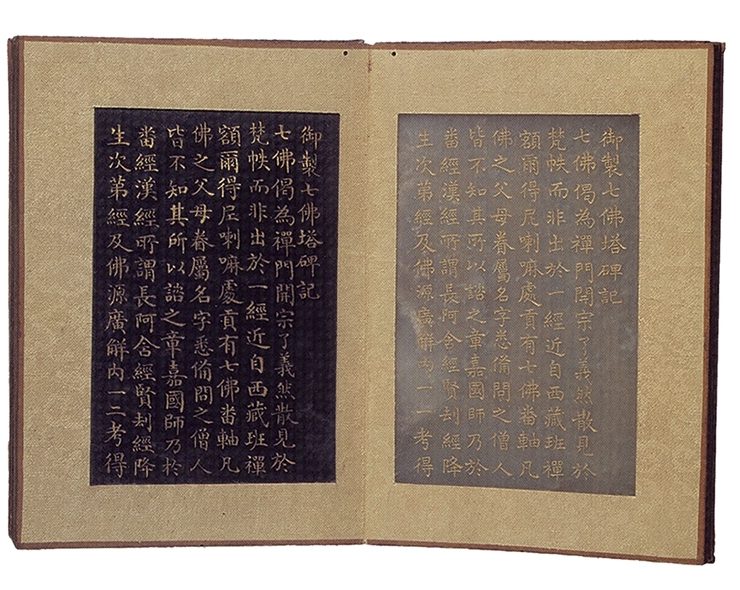 御製七佛塔碑記
七佛偈為禪門開宗了義然散見於
梵帙而非出於一經近自西藏班禪
額爾得尼喇嘛處貢有七佛畨軸凡
佛之父母眷屬名字悉俻問之僧人
皆不知其所以諮之章嘉國師乃於
畨經漢經所謂長阿含經賢刦經降
生次苐經及佛源廣觧内一一考得
御製七佛塔碑記
七佛偈為禪門開宗了義然散見於
梵帙而非出於一經近自西藏班禪
額爾得尼喇嘛處貢有七佛畨軸凡
佛之父母眷屬名字悉俻問之僧人
皆不知其所以諮之章嘉國師乃於
畨經漢經所謂長阿含經賢刦經降
生次苐經及佛源廣觧内一二考得